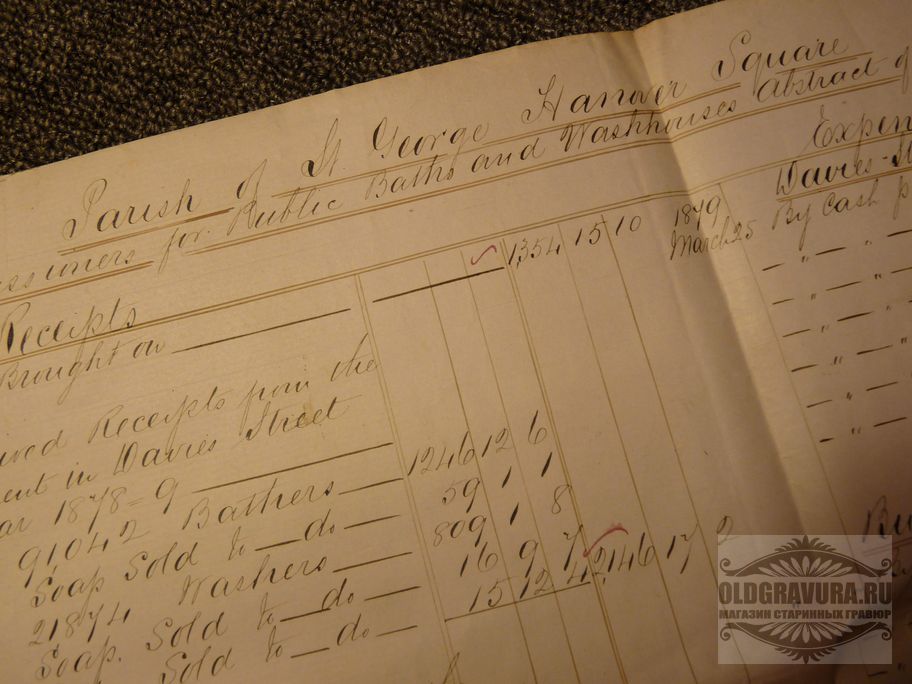 Parish of St. George Hanover Square
for Public Baths and Washhouses Abstract of
Receipts
Expen
Davies St
Brought on 1,354 15 10
1879
March 25 By Cash p
Receipts from the
ent in Davies Street
ar 1878=9
91042 Bathers 1246 12 6
Soap Sold to do 59 1 1
21874 Washers 809 1 8
Soap. Sold to do 16 9 7
Sold to do 15 12 4 2,146 17 2
OLDGRAVURA.RU
МАГАЗИН СТАРИННЫХ ГРАВЮР